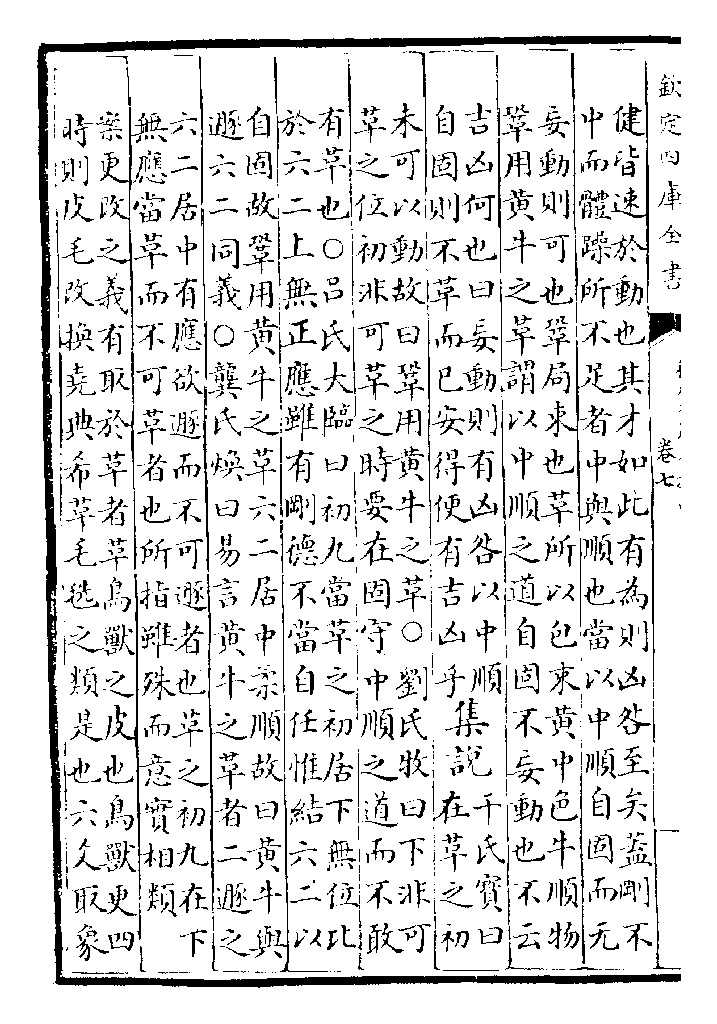 欽定四庫全書
卷七
健皆速於動也其才如此有為則凶咎至矣蓋剛不
中而體躁所不足者中與順也當以中順自固而无
妄動則可也鞏局束也革所以包束黃中色牛順物
鞏用黃牛之革謂以中順之道自固不妄動也不云
吉凶何也曰妄動則有凶咎以中順
自固則不革而已安得便有吉凶乎
集說
干氏寶曰
在革之初
未可以動故曰鞏用黃牛之革○劉氏牧曰下非可
革之位初非可革之時要在固守中順之道而不敢
有革也○呂氏大臨曰初九當革之初居下無位比
於六二上無正應雖有剛德不當自任惟結六二以
自固故鞏用黃牛之革六二居中柔順故曰黃牛與
遯六二同義○龔氏煥曰易言黃牛之革者二遯之
六二居中有應欲遯而不可遯者也革之初九在下
無應當革而不可革者也所指雖殊而意實相類
案更改之義有取於革者革鳥獸之皮也鳥獸更四
時則皮毛改換堯典希革毛毨之類是也六爻取象